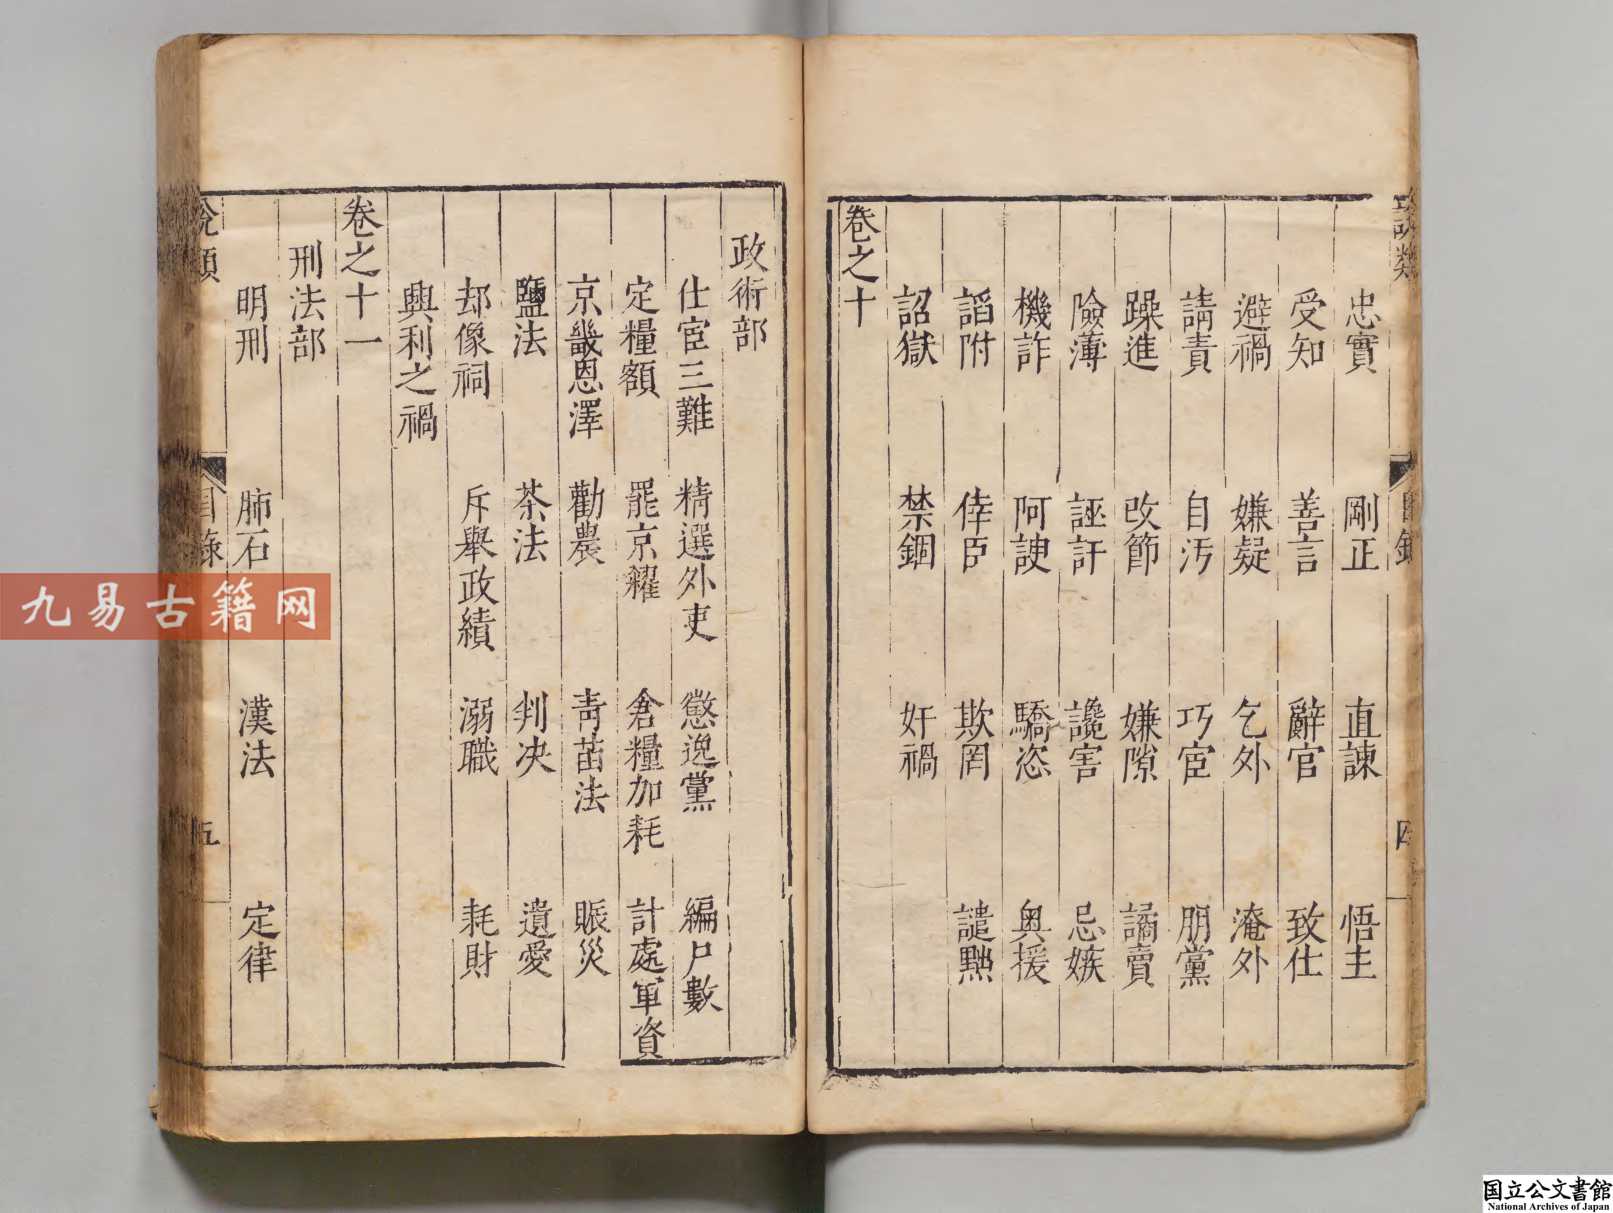 忠實 剛正 直諫 悟主
受知 善言 辭官 致仕
避禍 嫌疑 乞外 淹外
請責 自汚 巧宦 朋黨
躁進 改節 嫌隙 譎賣
險薄 誣訐 讒害 忌嫉
機詐 阿諛 驕恣 奧援
謟附 倖臣 欺罔 譴黜
詔獄 禁錮 奸禍
卷之十
政術部
仕宦三難 精選外吏 懲逸黨 編戶數
定糧額 罷京糴 倉糧加耗 計處軍資
京畿恩澤 勸農 靑苗法 賑災
鹽法 茶法 判决 遺愛
却像祠 斥舉政績 溺職 耗財
興利之禍
卷之十一
刑法部
明刑 肺石 漢法 定律
說類 目錄 五
九易古籍网
国立公文書館
National Archives of Japan